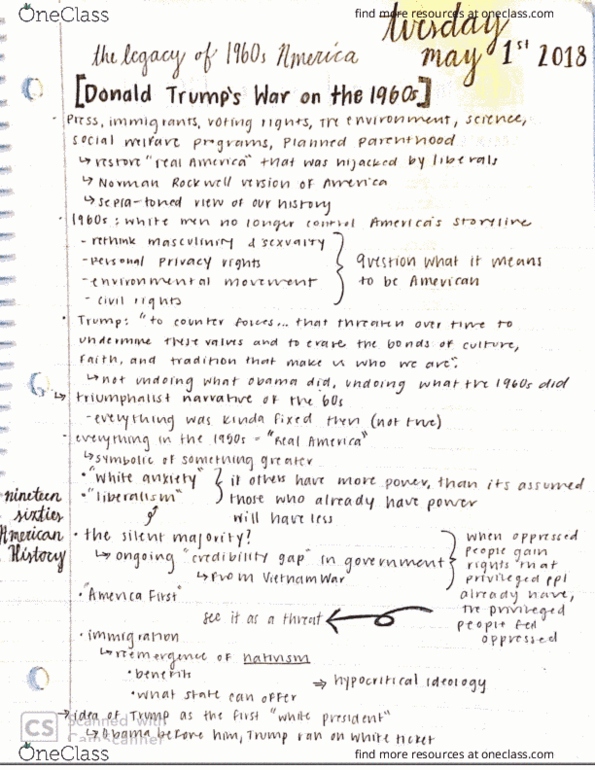 OneClass
find more resources at oneclass.com
tuesday
the legacy of 1960s America
may 1st 2018
[Donald Trump's War on the 1960s]
• Press, immigrants, voting rights, the environment, science,
social welfare programs, Planned Parenthood
↳ restore "real America" that was hijacked by liberals
↳ Norman Rockwell version of America
↳ sepia-toned view of our history
• 1960s: white men no longer control America's storyline
- rethink masculinity & sexuality
- personal privacy rights
- environmental movement
- civil rights
question what it means
to be American
• Trump: "to counter forces... that threaten over time to
undermine these values and to erase the bonds of culture,
faith, and tradition that make us who we are".
↳ not undoing what Obama did, undoing what the 1960s did
↳ triumphalist narrative of the 60s
- everything was kinda fixed then (not true)
- everything in the 1950s = "Real America"
↳ symbolic of something greater
• "white anxiety"
• "liberalism"
if others have more power, than its assumed
those who already have power
will have less
nineteen
sixties
American
History
• the silent majority?
↳ ongoing "credibility gap" in government
↳ from Vietnam War
when oppressed
people gain
rights that
privileged ppl
already have,
the privileged
people feel
oppressed
• "America First"
see it as a threat
• immigration
↳ reemergence of nativism
• benefits
• what state can offer
⇒ hypocritical ideology
→ idea of Trump as the first "white president"
↳ Obama before him, Trump ran on white ticket
CS Scanned with
CamScanner
OneClass
find more resources at oneclass.com